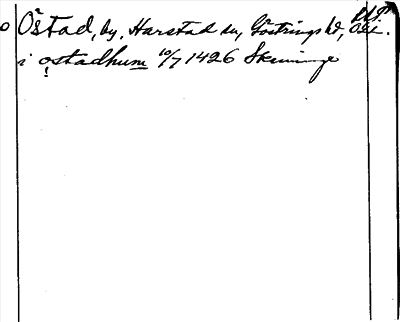 Östad, by, Harstad sn, Göstrings hd, Ög.
i ostadhum 10/7 1426 Skeninge